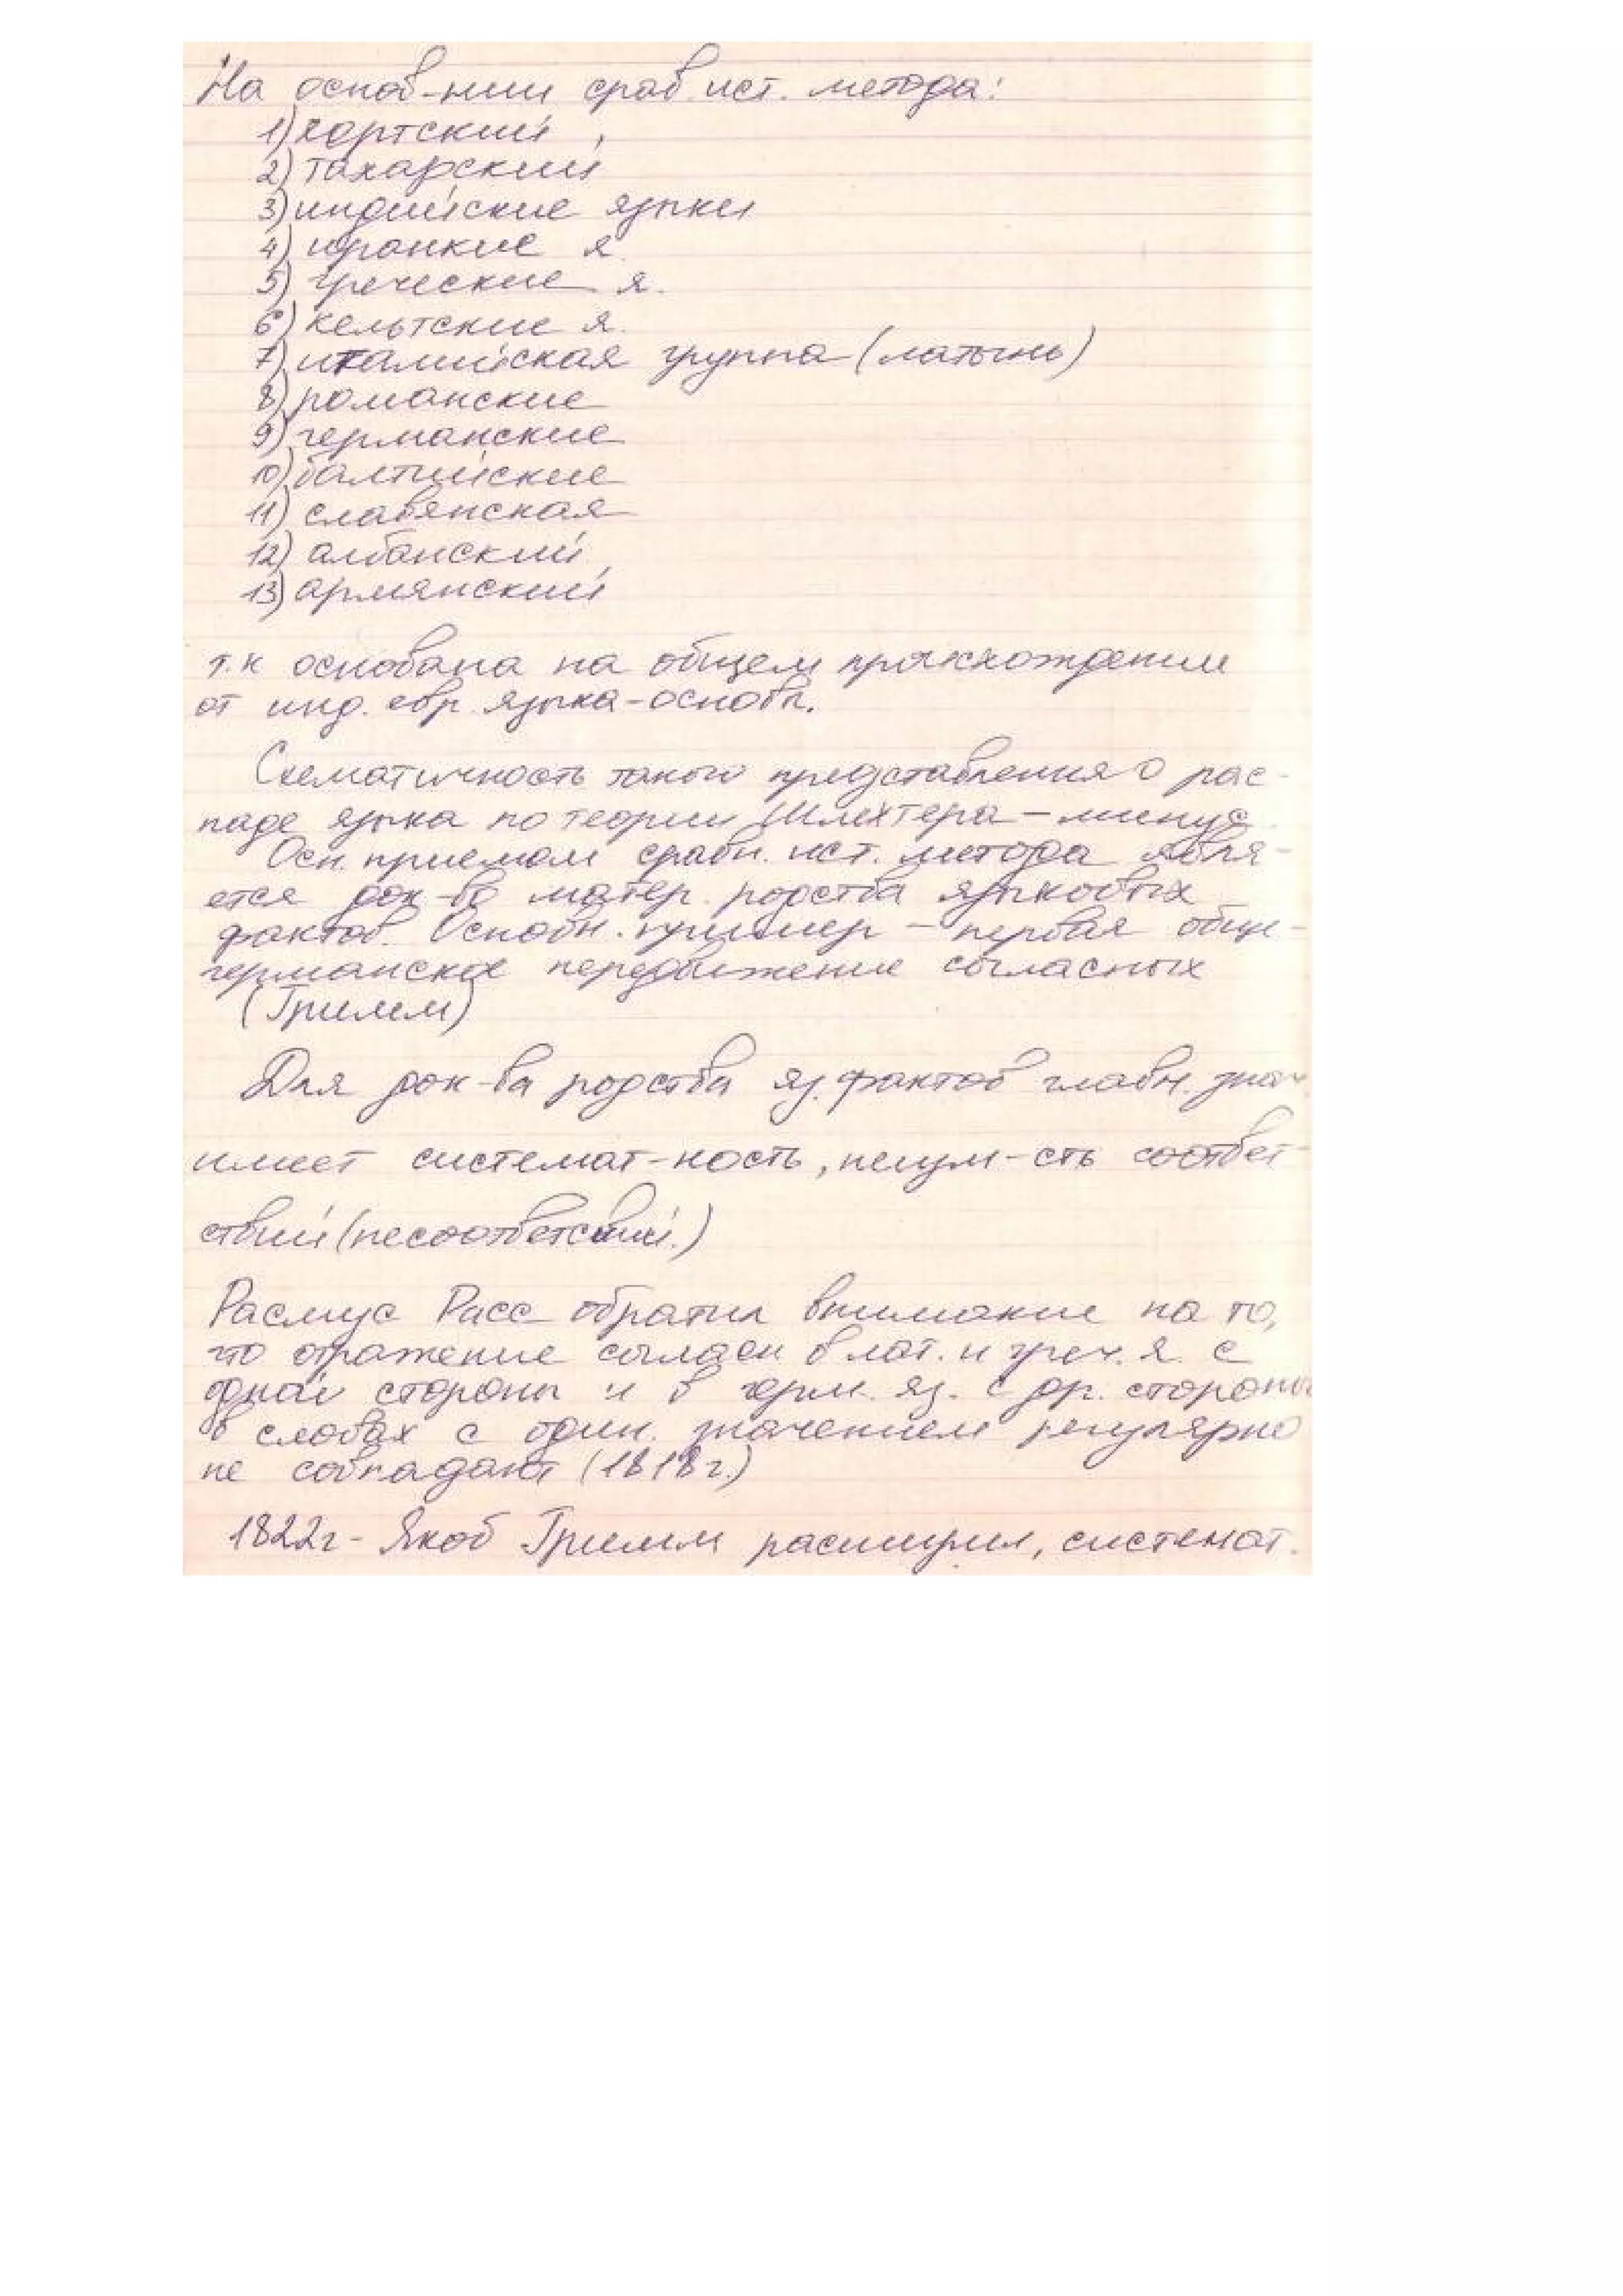 На основ-нии срав. ист. метода:
1) хортский,
2) тахарский
3) индийские языки
4) иранкие я.
5) греческие я.
6) кельтские я.
7) италийская группа (латынь)
8) романские
9) германские
10) балтийские
11) славянская
12) албанский,
13) армянский
т.к основана на общем происхождении
от инд. евр. языка-основы.
Схематичность такого представления о рас-
паде языка по теории Шлехтера - минус
Осн. приемом сравн. ист. метода явля-
ется док-во матер. родства языковых
фактов. Основн. пример - первая обще-
германское передвижение согласных
(Гримм)
Для док-ва родства яз. фактов главн. знач
имеет системат-ность, регуля-сть соответ-
ствий (несоответствий.)
Расмус Расс обратил внимание на то,
что отражение согласн. в лат. и греч. я. с
одной стороны и в герм. яз. с др. стороны
в словах с один. значением регулярно
не совпадают (1818г.)
1822г - Якоб Гримм расширил, системат.